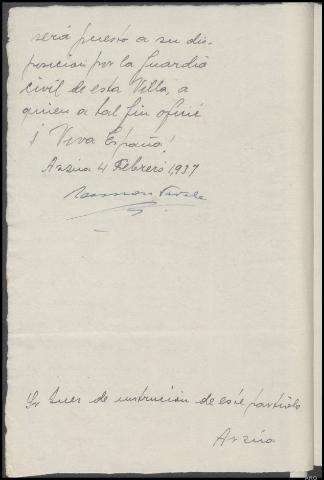 será puesto a su dis-
posicion por la Guardia
civil de esta Villa, a
quien a tal fin oficié
¡Viva España!
Arzúa 4 Febrero 1,937
Varela
Sr Juez de instrucion de este partido
Arzúa